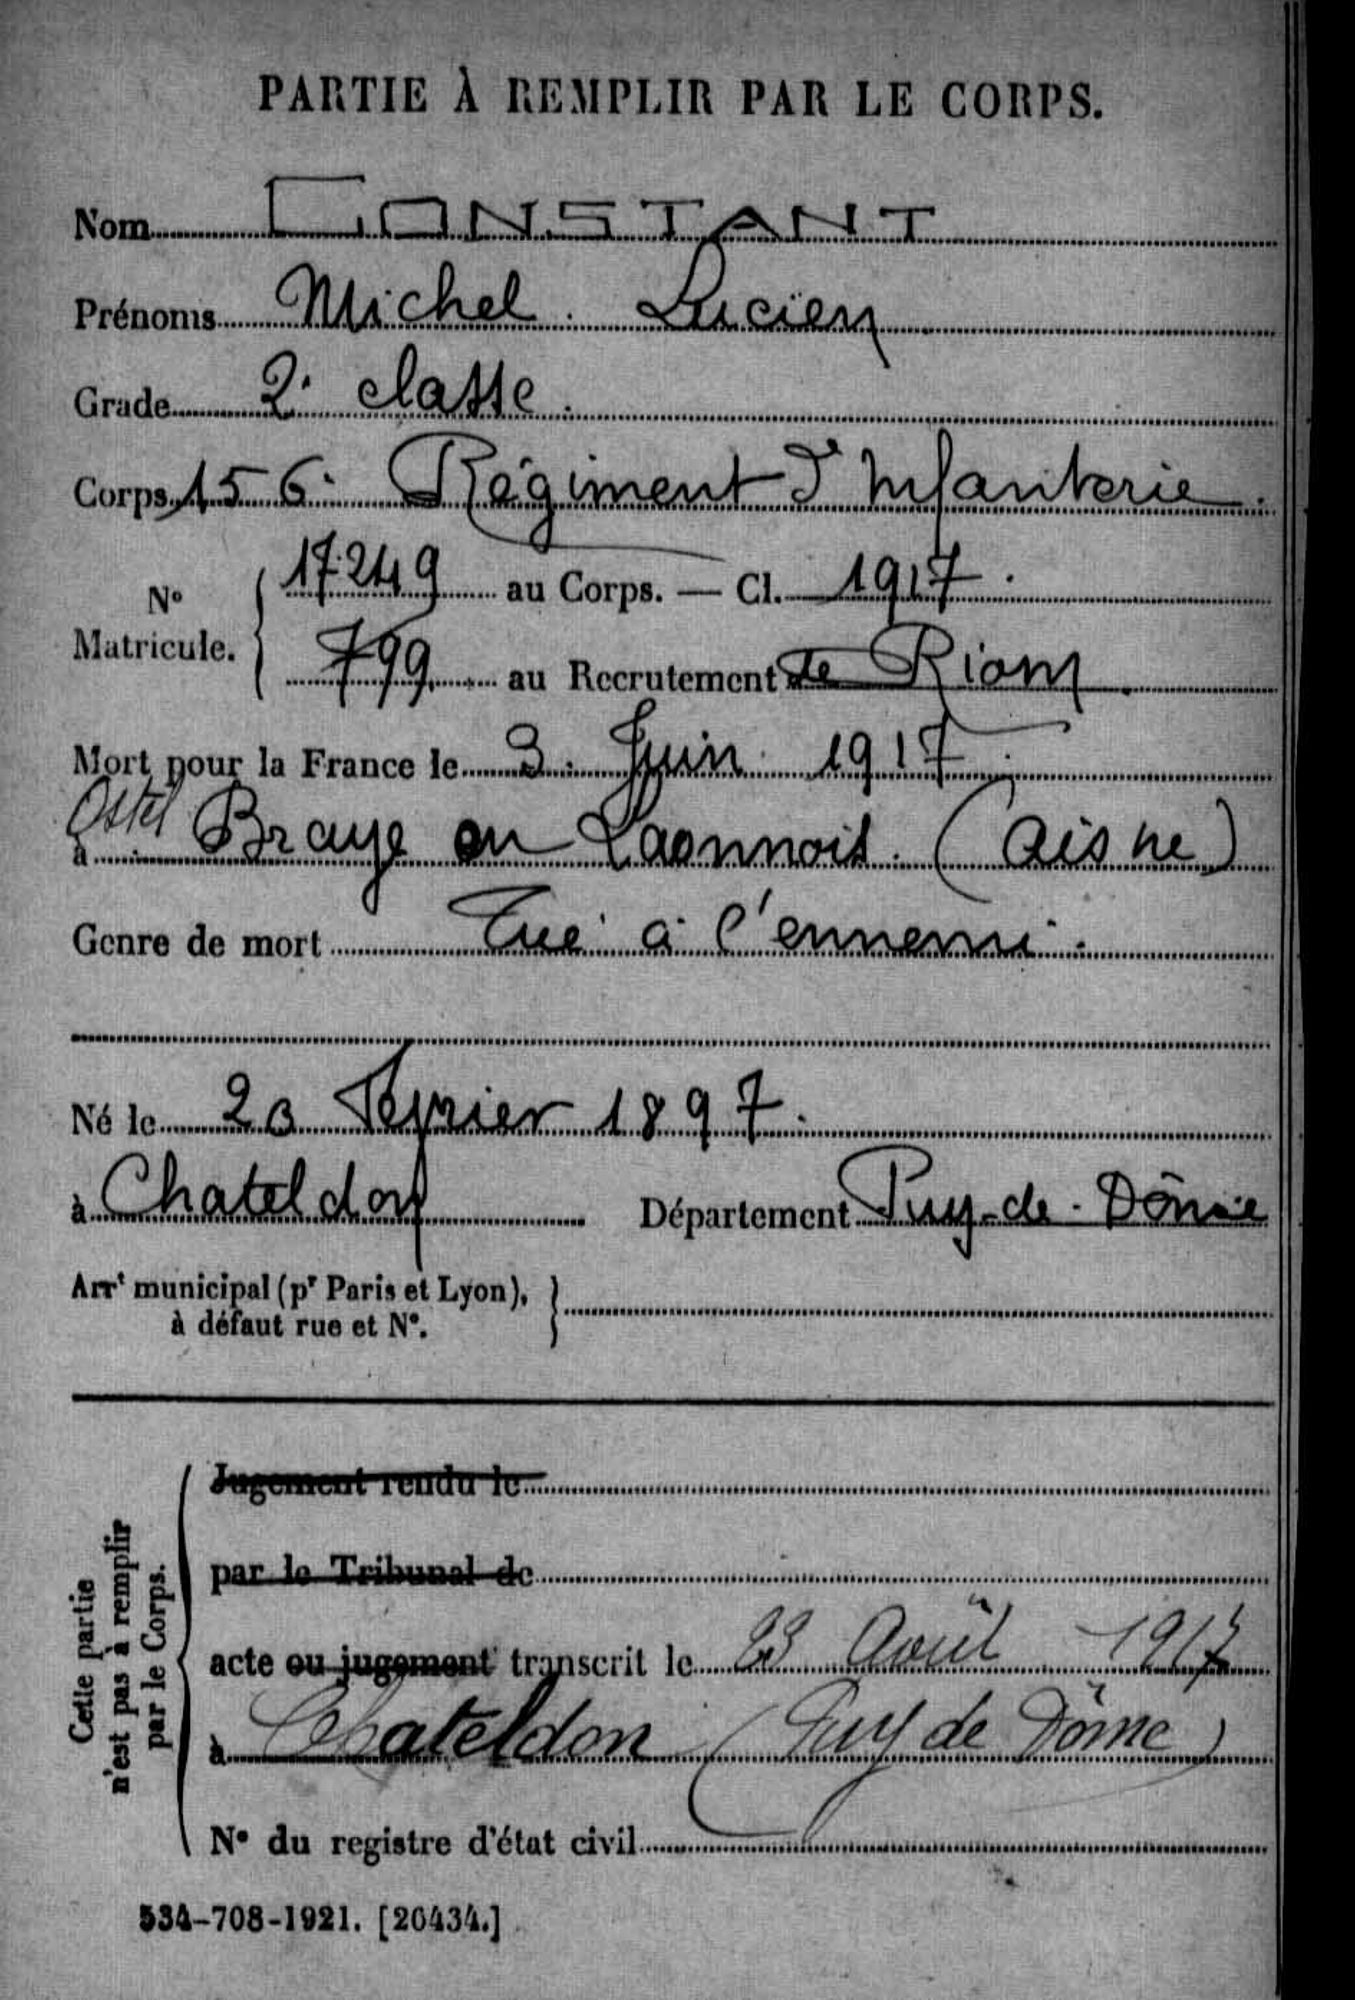 PARTIE À REMPLIR PAR LE CORPS.
Nom CONSTANT
Prénoms Michel Lucien
Grade 2e classe.
Corps 156e Régiment d'Infanterie.
No Matricule. { 17249 au Corps. — Cl. 1917.
799 au Recrutement de Riom
Mort pour la France le 3 Juin 1917.
Ostel
à Braye en Laonnois. (Aisne)
Genre de mort Tué à l'ennemi.
Né le Février 1897.
à Chateldon Département Puy-de-Dôme
Arrt municipal (pr Paris et Lyon),
à défaut rue et No.
Cette partie
n'est pas à remplir
par le Corps.
Jugement rendu le
par le Tribunal de
acte ou jugement transcrit le 23 Août 1917
à Chateldon (Puy de Dôme)
No du registre d'état civil
534-708-1921. [20434.]